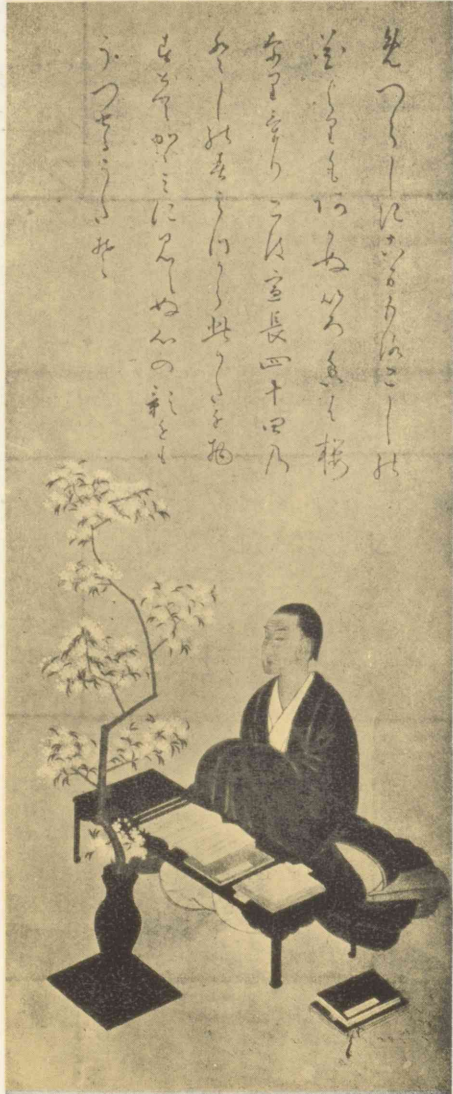 めつらしきこまもろこしの
花よりもあかぬいろ香は桜
なりけり こは宣長四十四乃
としの春みつから此かたを物
すとてかゝミに見えぬ心の影をも
うつせるうたそ